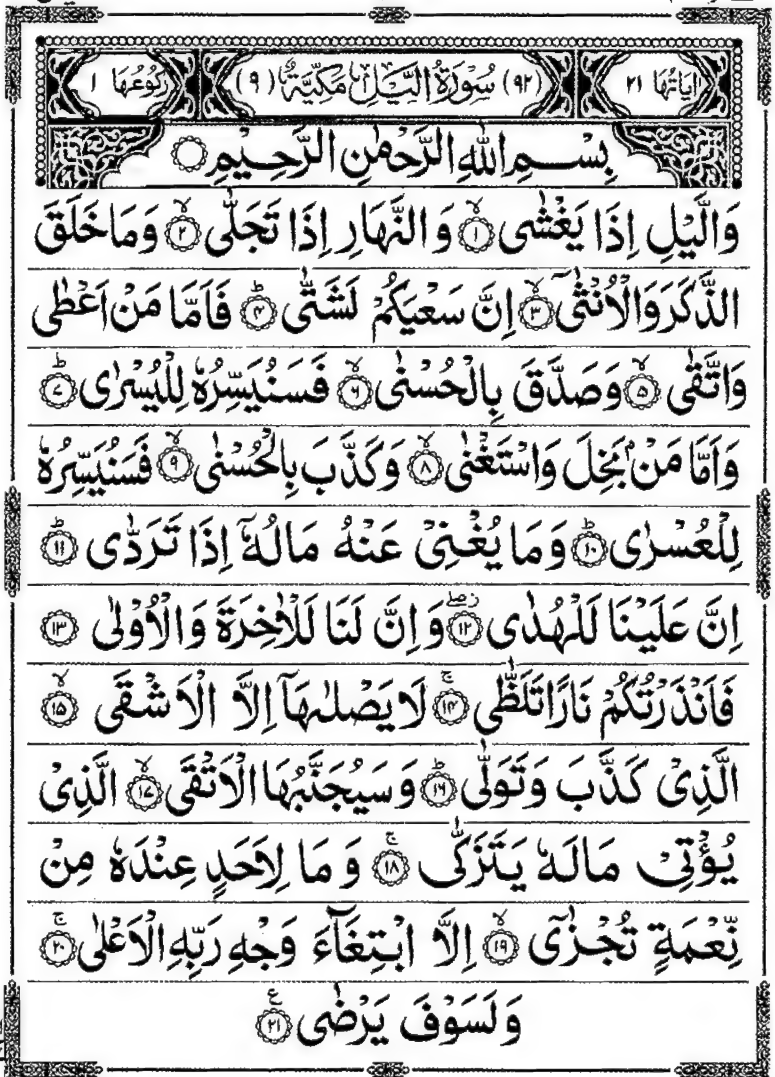 اٰيَاتُهَا ٢١ (٩٢) سُوْرَةُ الَّيْلِ مَكِّيَّةٌ (٩) رُكُوْعُهَا ١
بِسْمِ اللّٰهِ الرَّحْمٰنِ الرَّحِيْمِ
وَالَّيْلِ اِذَا يَغْشٰى ۙ‏﴿۱﴾ وَالنَّهَارِ اِذَا تَجَلّٰى ۙ‏﴿۲﴾ وَمَا خَلَقَ
الذَّكَرَ وَالْاُنْثٰٓى ۙ‏﴿۳﴾ اِنَّ سَعْيَكُمْ لَشَتّٰى ؕ‏﴿۴﴾ فَاَمَّا مَنْ اَعْطٰى
وَاتَّقٰى ۙ‏﴿۵﴾ وَصَدَّقَ بِالْحُسْنٰى ۙ‏﴿۶﴾ فَسَنُيَسِّرُهٗ لِلْيُسْرٰى ؕ‏﴿۷﴾
وَاَمَّا مَنْۢ بَخِلَ وَاسْتَغْنٰى ۙ‏﴿۸﴾ وَكَذَّبَ بِالْحُسْنٰى ۙ‏﴿۹﴾ فَسَنُيَسِّرُهٗ
لِلْعُسْرٰى ؕ‏﴿۱۰﴾ وَمَا يُغْنِىْ عَنْهُ مَالُهٗۤ اِذَا تَرَدّٰى ؕ‏﴿۱۱﴾
اِنَّ عَلَيْنَا لَلْهُدٰى ۖ‏﴿۱۲﴾ وَاِنَّ لَنَا لَلْاٰخِرَةَ وَالْاُوْلٰى‏﴿۱۳﴾
فَاَنْذَرْتُكُمْ نَارًا تَلَظّٰى ۚ‏﴿۱۴﴾ لَا يَصْلٰٮهَاۤ اِلَّا الْاَشْقَى ۙ‏﴿۱۵﴾
الَّذِىْ كَذَّبَ وَتَوَلّٰى ؕ‏﴿۱۶﴾ وَسَيُجَنَّبُهَا الْاَتْقَى ۙ‏﴿۱۷﴾ الَّذِىْ
يُؤْتِىْ مَالَهٗ يَتَزَكّٰى ۚ‏﴿۱۸﴾ وَمَا لِاَحَدٍ عِنْدَهٗ مِنْ
نِّعْمَةٍ تُجْزٰٓى ۙ‏﴿۱۹﴾ اِلَّا ابْتِغَآءَ وَجْهِ رَبِّهِ الْاَعْلٰى ۚ‏﴿۲۰﴾
وَلَسَوْفَ يَرْضٰى ‏﴿۲۱﴾